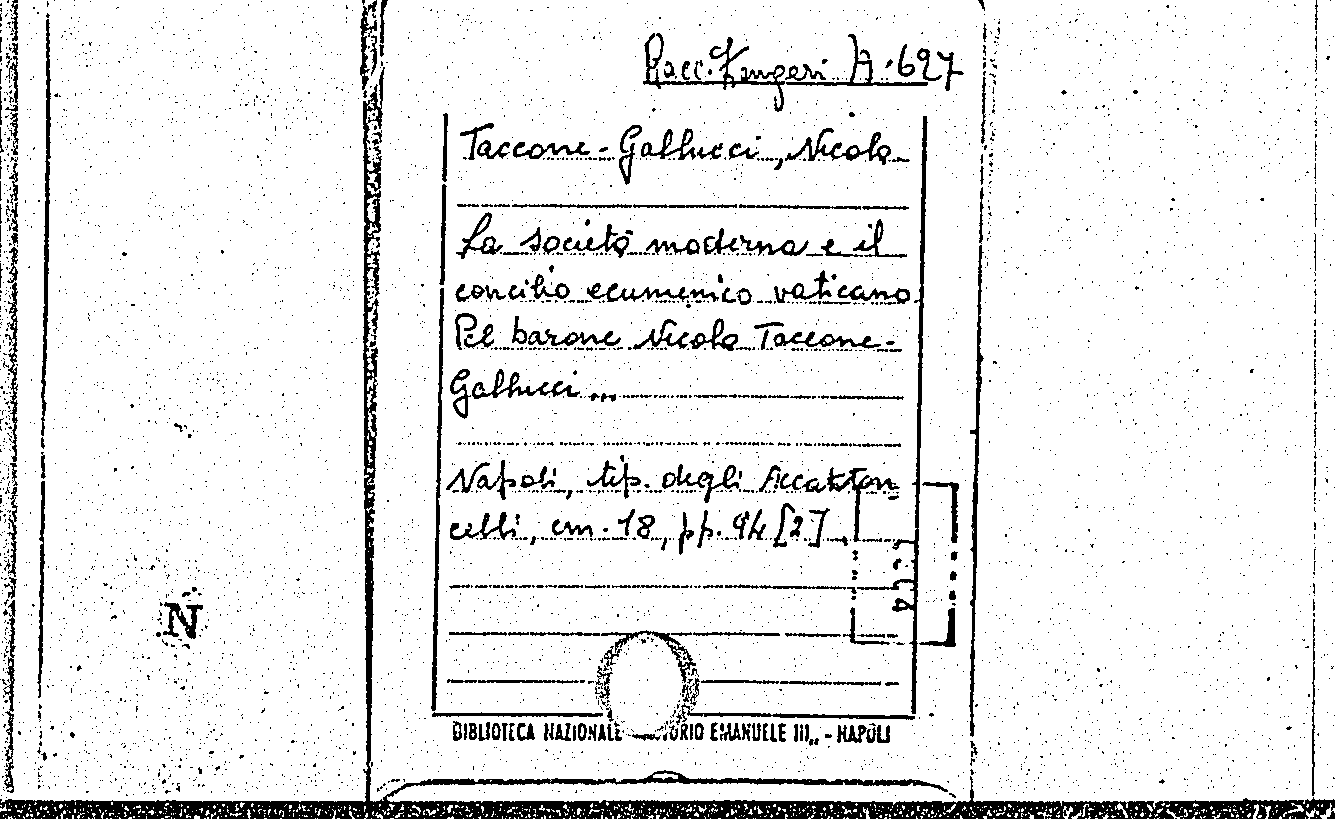 Racc. Zangari A. 627
Taccone-Gallucci, Nicola
La società moderna e il
concilio ecumenico vaticano.
Pel barone Nicola Taccone-
Gallucci ...
Napoli, tip. degli Accatton
celli, cm. 18, pp. 94 [2]
N
BIBLIOTECA NAZIONALE EMANUELE III„ - NAPOLI